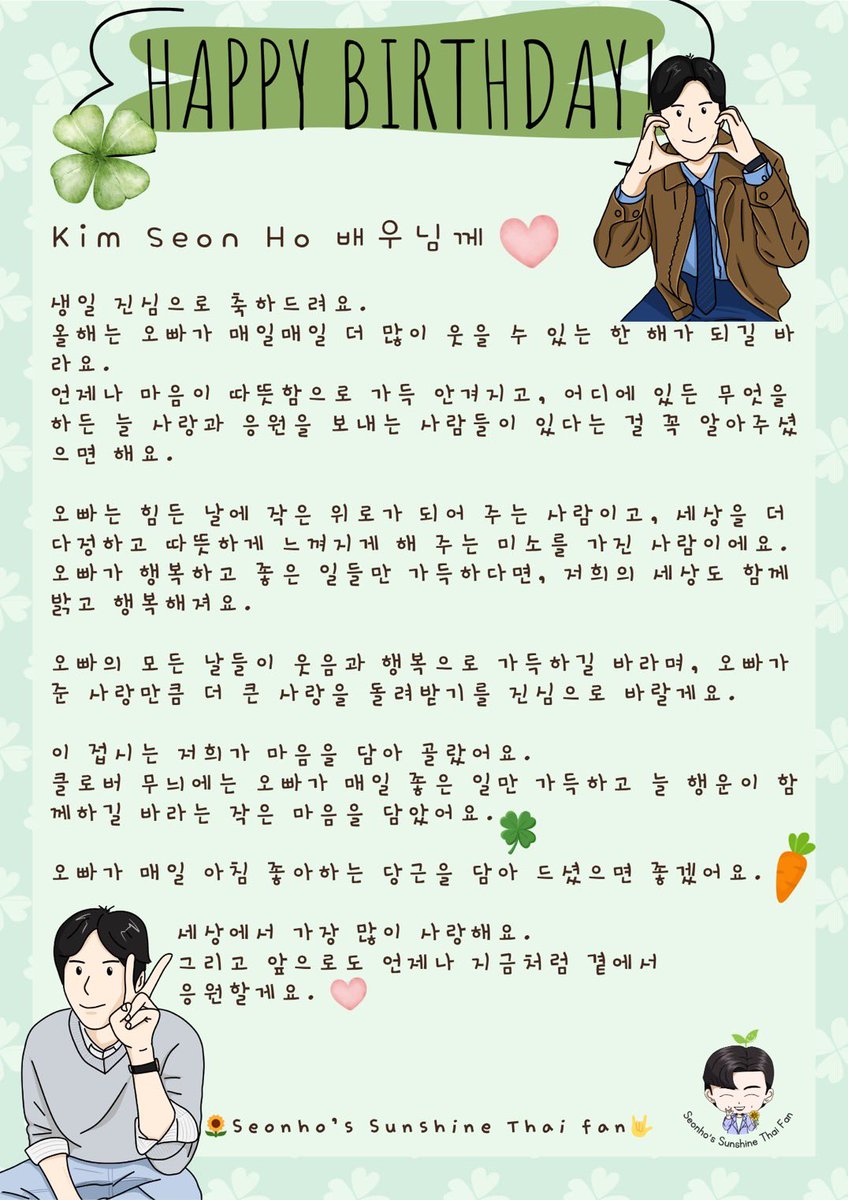 HAPPY BIRTHDAY!
Kim Seon Ho 배우님께
생일 진심으로 축하드려요.
올해는 오빠가 매일매일 더 많이 웃을 수 있는 한 해가 되길 바
라요.
언제나 마음이 따뜻함으로 가득 안겨지고, 어디에 있든 무엇을
하든 늘 사랑과 응원을 보내는 사람들이 있다는 걸 꼭 알아주셨
으면 해요.
오빠는 힘든 날에 작은 위로가 되어 주는 사람이고, 세상을 더
다정하고 따뜻하게 느껴지게 해 주는 미소를 가진 사람이에요.
오빠가 행복하고 좋은 일들만 가득하다면, 저희의 세상도 함께
밝고 행복해져요.
오빠의 모든 날들이 웃음과 행복으로 가득하길 바라며, 오빠가
준 사랑만큼 더 큰 사랑을 돌려받기를 진심으로 바랄게요.
이 접시는 저희가 마음을 담아 골랐어요.
클로버 무늬에는 오빠가 매일 좋은 일만 가득하고 늘 행운이 함
께하길 바라는 작은 마음을 담았어요.
오빠가 매일 아침 좋아하는 당근을 담아 드셨으면 좋겠어요.
세상에서 가장 많이 사랑해요.
그리고 앞으로도 언제나 지금처럼 곁에서
응원할게요.
Seonho's Sunshine Thai fan
Seonho's Sunshine Thai Fan